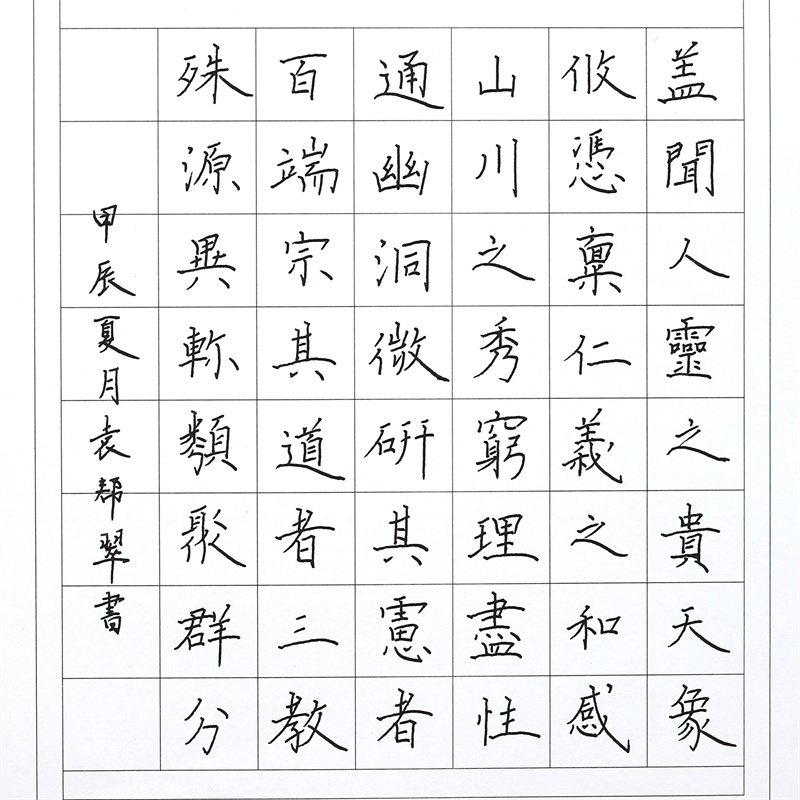 盖聞人靈之貴天象
攸憑禀仁義之和感
山川之秀窮理盡性
通幽洞微研其慮者
百端宗其道者三教
殊源異軫類聚群分
甲辰夏月袁郬翠書